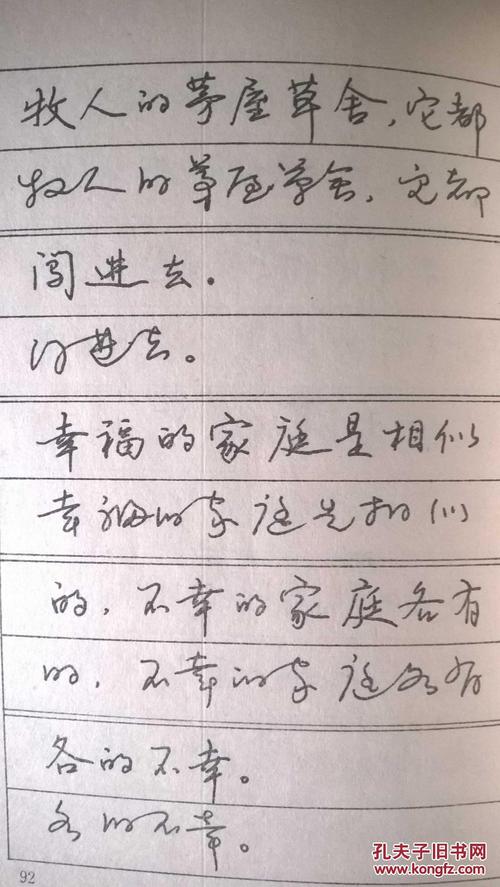 牧人的茅屋草舍，它都
牧人的茅屋草舍，它都
闯进去。
闯进去。
幸福的家庭是相似
幸福的家庭是相似
的，不幸的家庭各有
的，不幸的家庭各有
各的不幸。
各的不幸。
92
孔夫子旧书网
www.kongfz.com